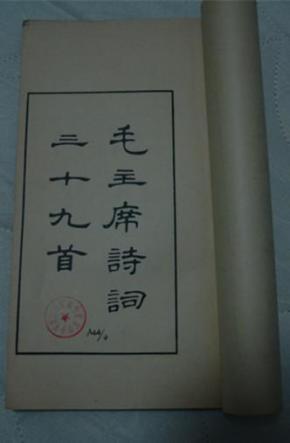 毛主席詩詞
三十九首